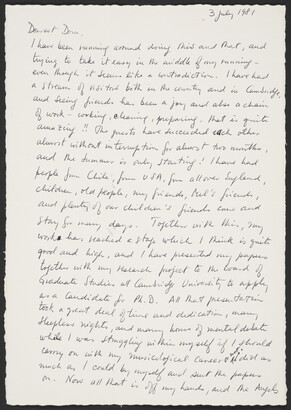 3 July 1981
Dearest Dom,
I have been running around doing this and that, and
trying to take it easy in the middle of my running -
even though it seems like a contradiction. I have had
a stream of visitors both in the country and in Cambridge,
and seeing friends has been a joy and also a chain
of work - working, cleaning, preparing. That is quite
amazing!! The guests have succeeded each other
almost without interruption for almost two months,
and the summer is only starting! I have had
people from Chile, from USA, from all over England,
children, old people, my friends, friends,
and plenty of our children's friends come and
stay for many days. Together with this, my
work has reached a stage which I think is quite
good and high, and I have presented my papers
together with my research project to the Board of
Graduate Studies at Cambridge University to apply
as a candidate for Ph.D. All that presentation
took a great deal of time and dedication, many
sleepless nights, and many hours of mental debate
while I was struggling within myself if I should
carry on with my musicological career. I did as
much as I could by myself and sent the papers
on. Now all that is off my hands, and the Angels